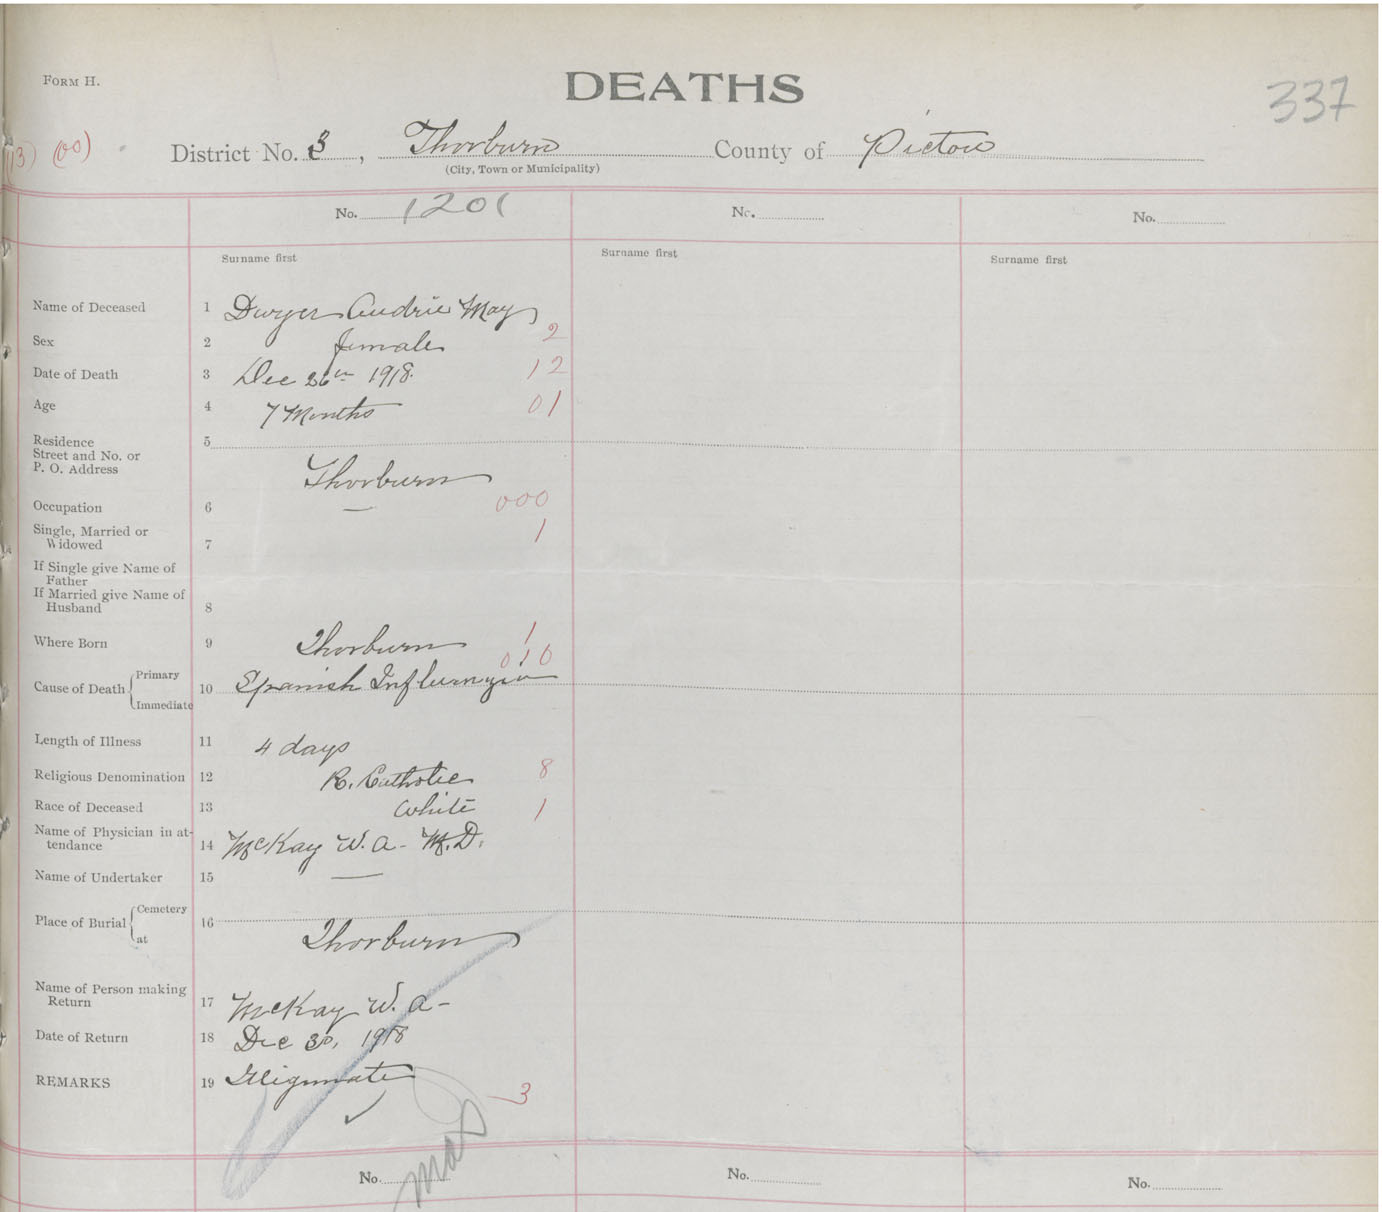 FORM H.
DEATHS
337
(13) (00)
District No. 3, Thorburn County of Pictou
(City, Town or Municipality)
No. 1201 No. No.
Surname first Surname first Surname first
Name of Deceased 1 Dwyer Audrie May
Sex 2 female 2
Date of Death 3 Dec 26th 1918. 12
Age 4 7 Months 01
Residence 5
Street and No. or
P. O. Address
Thorburn
Occupation 6 — 000
Single, Married or 1
Widowed 7
If Single give Name of
Father
If Married give Name of
Husband 8
Where Born 9 Thorburn 1
010
Cause of Death Primary
Immediate 10 Spanish Influenzia
Length of Illness 11 4 days
Religious Denomination 12 R. Catholic 8
Race of Deceased 13 White 1
Name of Physician in at-
tendance 14 McKay W. A - M.D.
Name of Undertaker 15 —
Place of Burial Cemetery 16
at
Thorburn
Name of Person making
Return 17 McKay W. A -
Date of Return 18 Dec 30, 1918
REMARKS 19 Illigimate
3
No. No. No.